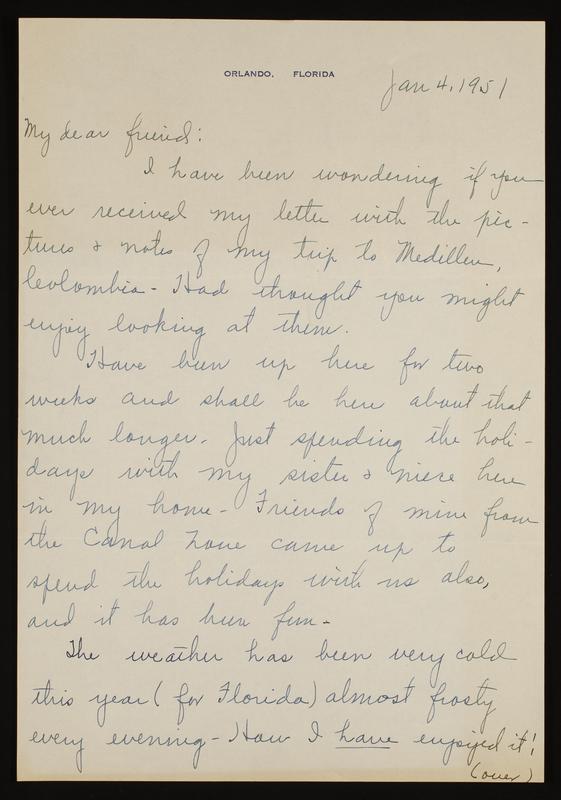 ORLANDO, FLORIDA
Jan 4, 1951
My dear friend:
I have been wondering if you
ever received my letter with the pic-
tures & notes of my trip to Medillen,
Colombia - Had thought you might
enjoy looking at them.
Have been up here for two
weeks and shall be here about that
much longer. Just spending the holi-
days with my sister & niece here
in my home - Friends of mine from
the Canal Zone came up to
spend the holidays with us also,
and it has been fun -
The weather has been very cold
this year (for Florida) almost frosty
every evening - How I have enjoyed it!
(over)